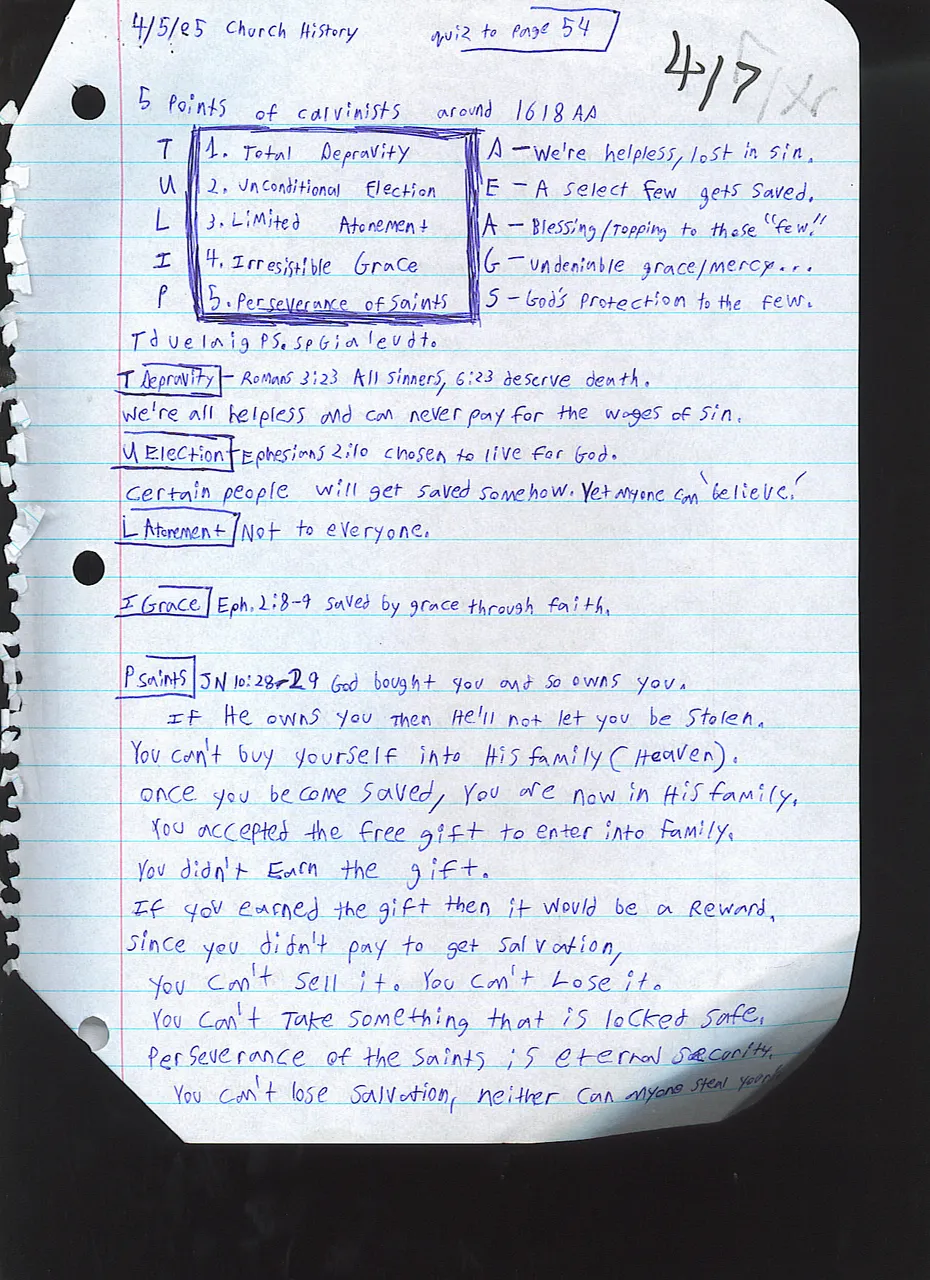 4/5/05 Church History quiz to page 54
4/7
5 Points of calvinists around 1618 AD
T 1. Total Depravity A – We're helpless, lost in sin.
U 2. Unconditional Election E – A select few gets saved.
L 3. Limited Atonement A – Blessing/Topping to those "few!"
I 4. Irresistible Grace G – undeniable grace/mercy...
P 5. Perseverance of Saints S – God's Protection to the few.
Tduelnig PS. spGialeudt.
T Depravity – Romans 3:23 All sinners, 6:23 deserve death.
We're all helpless and can never pay for the wages of sin.
U Election – Ephesians 2:10 chosen to live for God.
Certain people will get saved somehow. Yet anyone can 'believe.'
L Atonement Not to everyone.
I Grace Eph. 2:8-9 saved by grace through faith.
P saints JN 10:28-29 God bought you and so owns you.
If He owns you Then He'll not let you be Stolen.
You can't buy yourself into His family (Heaven).
once you become saved, You are now in His family.
You accepted the free gift to enter into family.
You didn't Earn the gift.
If you earned the gift then it would be a Reward,
since you didn't pay to get salvation,
You Can't sell it. You Can't Lose it.
You Can't Take something that is locked safe.
Perseverance of the Saints is eternal security.
You can't lose salvation, neither can anyone steal